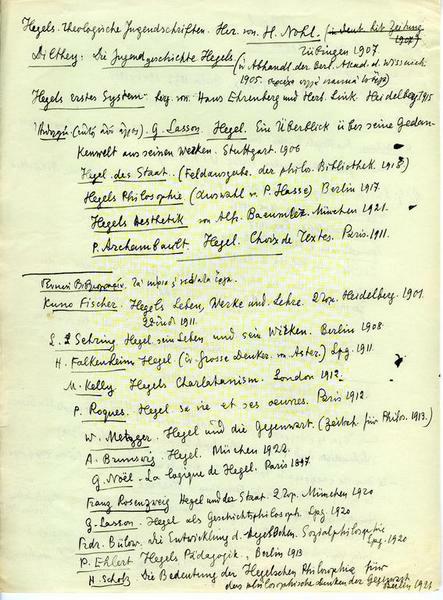 Hegels theologische Jugendschriften. Her. von H. Nohl. (in deut. Lit. Zeitung
1908)
Tübingen 1907.
Dilthey: Die Jugendgeschichte Hegels (in Abhandl. der Berl. Akad. d. Wissensch.
1905.
Hegels erstes System – herg. von Hans Ehrenberg und Herb. Link. Heidelberg 1915
G. Lasson. Hegel. Ein Überblick über seine Gedan-
kenwelt aus seinen Werken. Stuttgart. 1906
Hegel des Staat. (Feldausgabe der philos. Bibliothek. 191
Hegels Philosophie (Auswahl v. P. Hasse) Berlin 1917.
Hegels Aesthetik von Alfr. Baeumler. München 1921.
P. Archambault. Hegel. Choix de Textes. Paris. 1911.
Γενική Βιβλιογραφία.
Kuno Fischer. Hegels Leben, Werke und Lehre. 2 Heidelberg. 1901
1911.
Hegel sein Leben und sein Wirken. Berlin 1908
H. Falkenheim Hegel (in Grosse Denker von Aster.) Lpg. 1911
M. Kelly Hegels Charlatanism. London 1912.
P. Roques. Hegel sa vie et ses oeuvres. Paris 1912
W. Metzger. Hegel und die Gegenwart. (Zeitsch. für Philos. 1913.)
A. Brunswig. Hegel. München 1922.
G. Noël. La logique de Hegel. Paris 1897
Franz Rosenzweig Hegel und der Staat. 2 München 1920
G. Lasson. Hegel als Geschichtsphilosoph. Lpg 1920
Frdr. Bülow. Die Entwicklung d. Hegelschen Sozialphilosophie
Lpg. 1920
P. Ehlert Hegels Pädagogik, Berlin 1913
H. Scholz Die Bedeutung der Hegelschen Philosophie für
das philosophische denken der Gegenwart
Berlin 1921